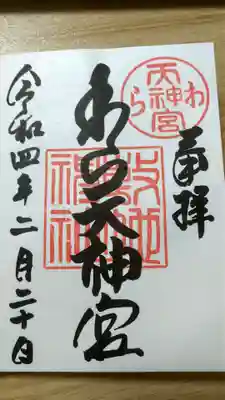 奉拝
わら天神宮
令和四年二月二十日
わら
天神宮
敷地
神社